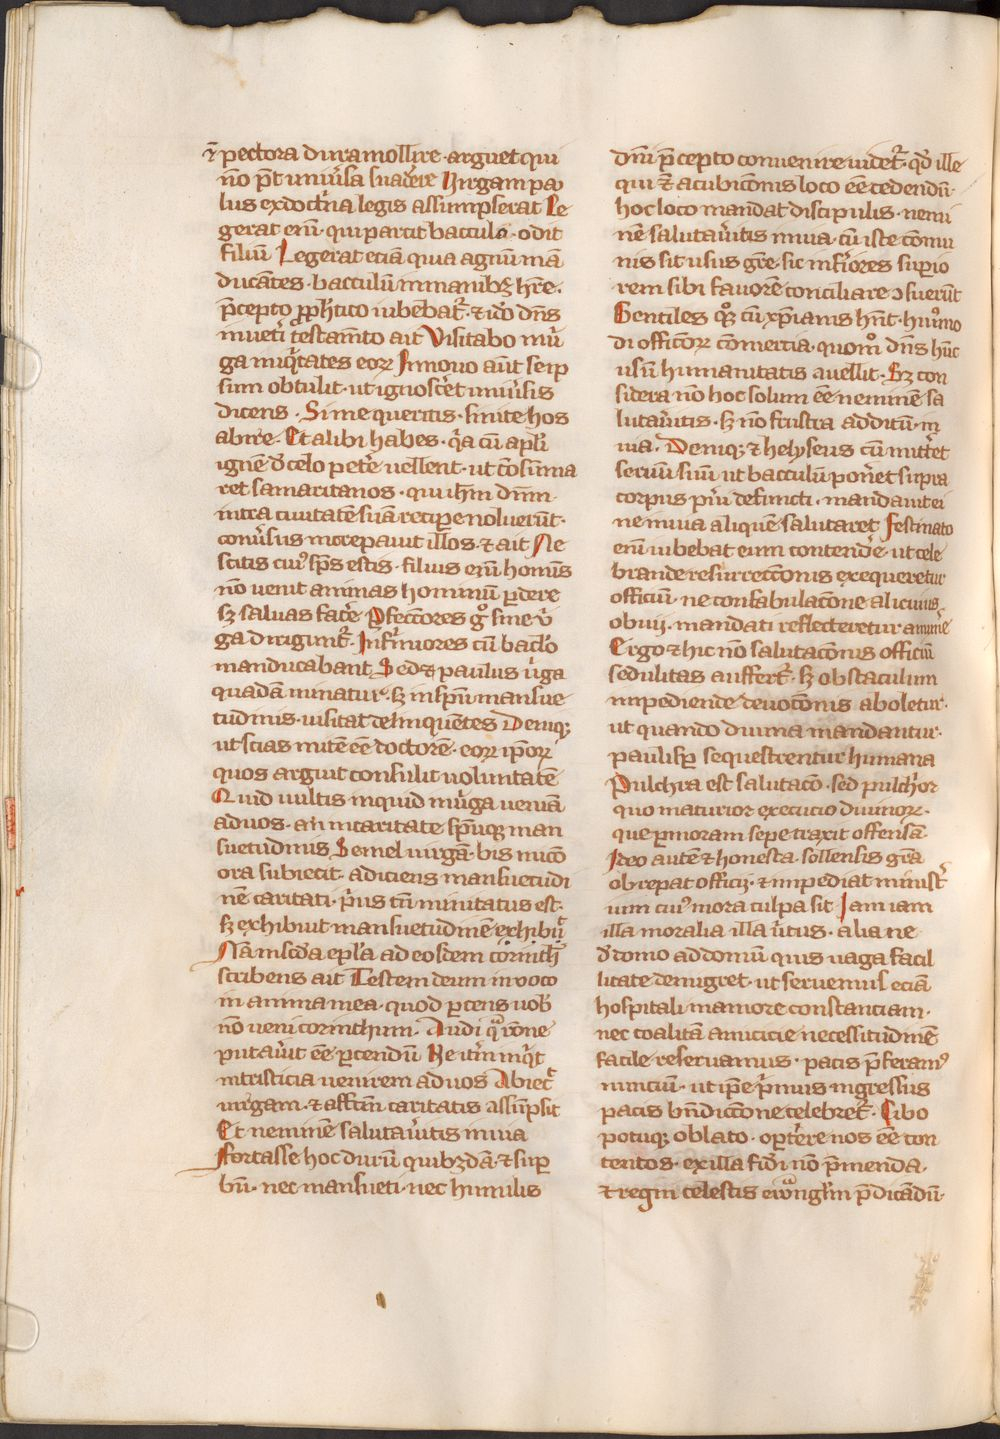 ⁊ pectora dura mollire · arguet qui
nō p̄t uniūsa suad̄ere Virgam pau
lus ex doct̄na legis assumpserat Le
gerat em̄ · qui parcit bacculo · odit
filiū Legerat eciā quia agnum mā
ducātes · bacculum in manibꝫ hr̄e ·
p̄cepto ꝓph̄tico iubēbat᷑ · ⁊ iō dn̄s
in uet̄i testam̄to ait Visitabo in ū
ga iniq̄tates eoꝝ In nouo aūt seip
sum obtulit · ut ignosc̄et uniūsis
dicens · Si me queritis · sinite hos
abire · Et alibi habes · q̄a cū apl̄i
ignē d̄ celo pet̄e uellent · ut cōsūma
ret samaritanos · qui ih̄m dn̄m ·
intra ciuitatē suā recipe noluerūt ·
conūsus increpauit illos · ⁊ ait Ne
scitis cuiꝰ sp̄s estis · filius em̄ homīs
nō uenit animas hominū ꝑdere
sꝫ saluas fac̄e Pfectores gͦ sine ū
ga dirigunt᷑ · Infirmiores cū bacl̄o
manducabant Sed ⁊ paulus ūga
quadā minatur · sꝫ in sp̄u mansue
tudinis · uisitat delinquētes Deniqꝫ
ut scias mitē eē doctorē · eoꝝ ip̄oꝝ
quos arguit consulit uoluntatē
Quid uultis inquid in ūga ueniā
ad uos · an in caritate sp̄uqꝫ man
suetudinis Semel uirgā · bis mico
ora subiecit · adiciens mansuetudi
nē caritati · p̄us tn̄ minitatus est ·
sꝫ exhibuit mansuetudinē exhibuit᷑
Nā in sc̄da epl̄a ad eosdem corinth̄
scribens ait Testem deum inuoco
in anima mea · quod ꝑcens uob̄
nō ueni corinthum · Audi qͣ rōne
putauit eē ꝑcendū Ne it̄m inq̄t
in tristicia uenirem ad uos Abiec̄
uirgam · ⁊ affctm̄ caritatis assūpsit
Et neminē salutau̅itis in uia
Fortasse hoc durū quibꝫdā · ⁊ suꝑ
bū · nec mansueti · nec humilis
dn̄i p̄cepto conuenire uidet᷑ · qͦd ille
qui ⁊ accubitōnis loco eē cedendū ·
hoc loco mandat discipulis · nemi
nē salutaūitis in uia · cū iste cōmu
nis sit usus gr̄e · sic inf̄iores suꝑio
rem sibi fauorē conciliare ↄsuerūt
Gentiles qͦꝫ cū xp̄ianis hn̄t · huiꝰmo
di officioꝝ cōmercia · quomͦ dn̄s hūc
usū humanitatis auellit · Sꝫ con
sidera nō hoc solum eē neminē sa
lutaūitis · sꝫ nō frustra additū · in
uia · Deniqꝫ ⁊ helyseus cū mitt̄et
seruū suū ut bacculū pon̄et supra
corpus p̄ui defuncti · mandauit ei
ne in uia aliquē salutaret Festinato
em̄ iubebat eum contend̄e · ut cele
brande resurrectōnis exequeretur
officiū · ne confabulacōne alicuius ·
obuij · mandati reflecteretur a mun̄e
Ergo ⁊ hic nō salutacōnis officiū
sedulitas auffert᷑ · sꝫ obstaculum
impediende deuocōnis aboletur ·
ut quando diuina mandantur ·
paulisꝑ sequestrentur humana
Pulchra est salutacō · sed pulch̄ior
quo maturior execucio diuinoꝝ ·
que ꝑ moram sepe traxit offensā ·
Ideo autē ⁊ honesta · sollensis gr̄a
obrepat officij · ⁊ impediat minist̄
ium cuiꝰ mora culpa sit Iam iam
illa moralia illa ūtus · alia ne
d̄ domo ad domū quis uaga facil
litate demigret · ut seruemus eciā
hospitali in amore constanciam ·
nec coalitā amicicie necessitudinē
facile reseruamus · pacis p̄feramꝰ
nunciū · ut ip̄e p̄mus ingressus
pacis bn̄dictōne celebret᷑ · Cibo
potuqꝫ oblato · oport̄ere nos eē con
tentos · ex illa fid̄i nō p̄menda ·
⁊ regni celestis ewͣngl̄m p̄dicādū ·